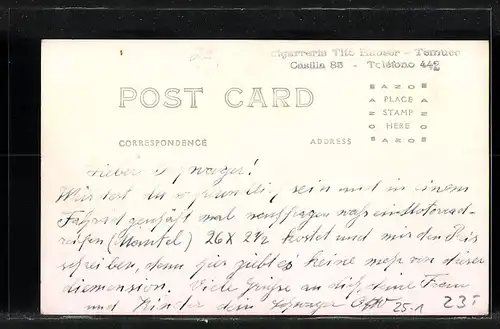 Cigarreria Tito Hauser - Temuco
Casilla 83 - Teléfono 442
POST CARD
AZOE
PLACE
STAMP
HERE
AZOE
CORRESPONDENCE
ADDRESS
Lieber Schwager!
Würdest du so freundlich sein und in einem
Fahrrad geschäft mal nachfragen was ein Motorrad-
reifen (Mantel) 26 X 2½ kostet und mir den Preis
schreiben, denn hier gibt es keine mehr von dieser
diemension. Viele Grüsse an dich, deine Frau
und Kinder dein Schwager
25-1
23